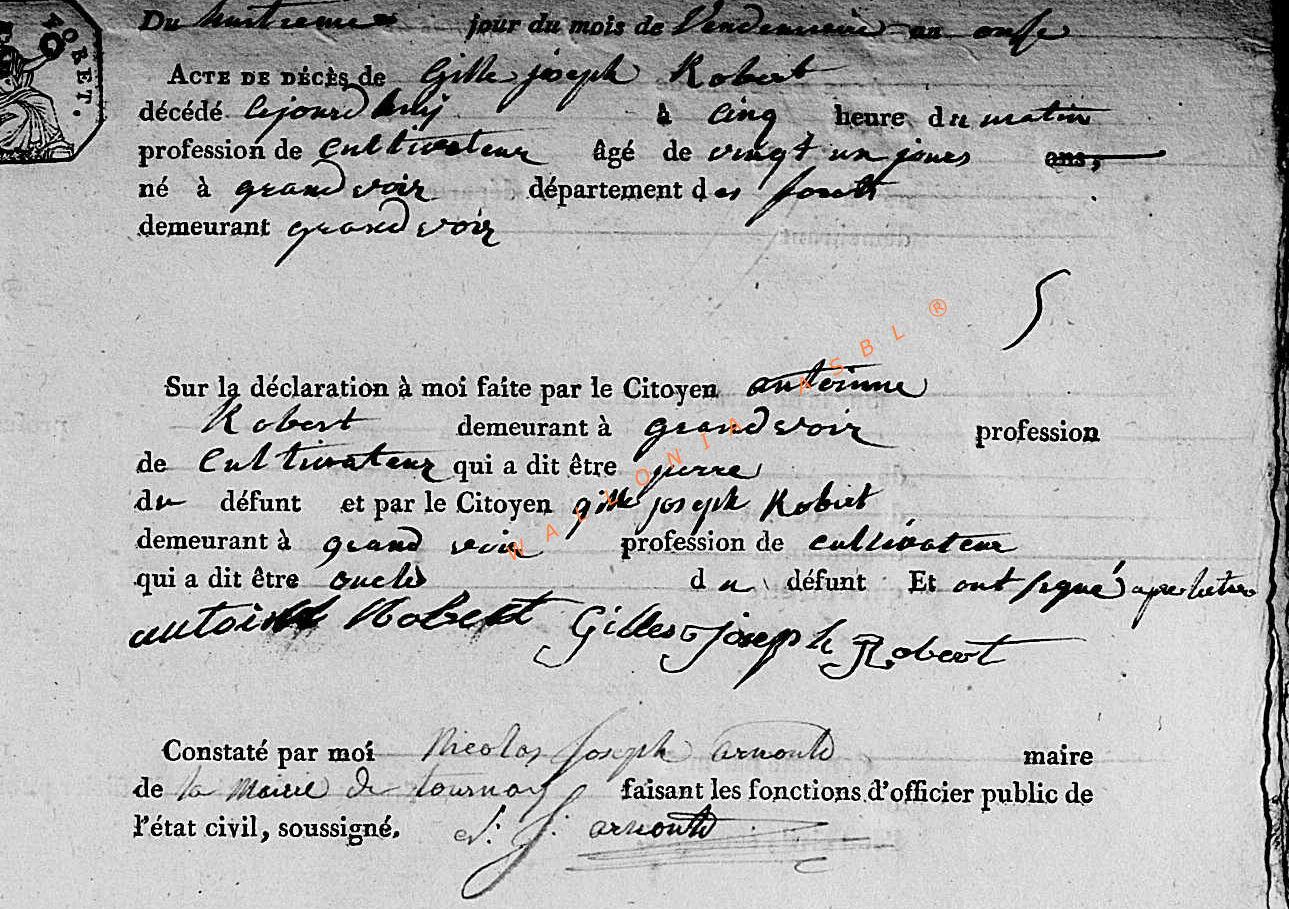 Du huitieme jour du mois de Vendemiaire an onse
ACTE DE DÉCÈS de Gille joseph Robert
décédé lejourdhuy à cinq heure du matin
profession de cultivateur âgé de vingt un jours ans,
né à grandvoir département des forets
demeurant grandvoir
Sur la déclaration à moi faite par le Citoyen antoinne
Robert demeurant à grandvoir profession
de Cultivateur qui a dit être perre
du défunt et par le Citoyen gille joseph Robert
demeurant à grand voir profession de cultivateur
qui a dit être oncle du défunt Et ont signé apres lecture
antoine Robert Gilles joseph Robert
Constaté par moi Nicolas Joseph arnould maire
de la Mairie de tournay faisant les fonctions d'officier public de
l'état civil, soussigné. N. J. arnould
WALLONIA ASBL ®